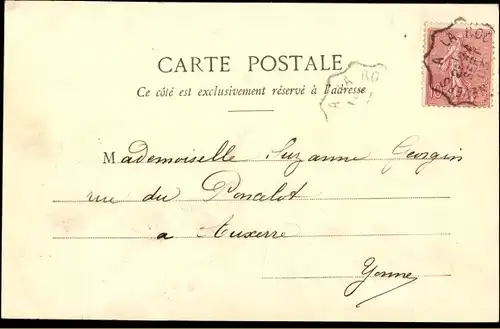 CARTE POSTALE
Ce côté est exclusivement réservé à l'adresse
A LA ROC
A LA RO
Mademoiselle Suzanne Georgin
rue du Poncelot
a Auxerre
Yonne